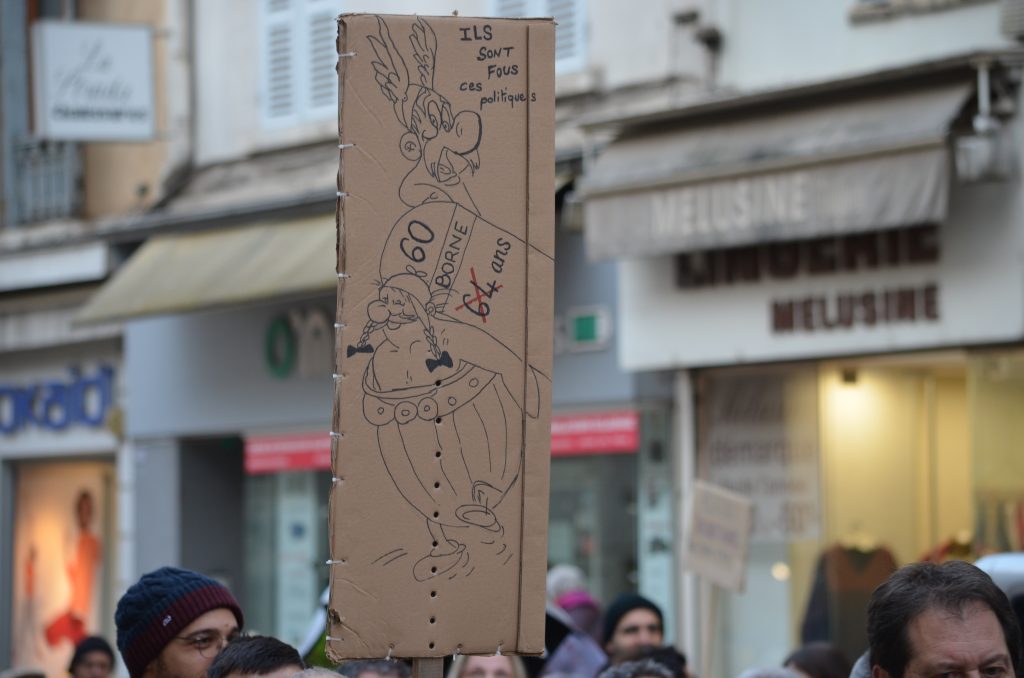 ILS
SONT
FOUS
ces
politiques
60
BORNE
64 ans
MELUSINE
LINGERIE
MELUSINE
okaïdi